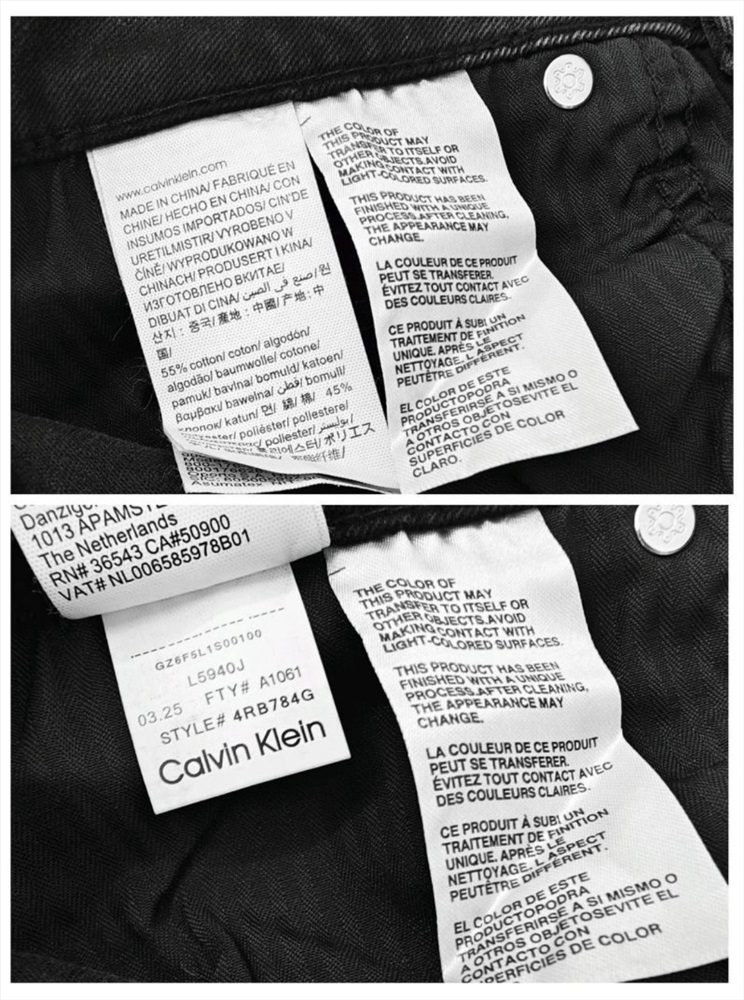 www.calvinklein.com
MADE IN CHINA/ FABRIQUÉ EN
CHINE/ HECHO EN CHINA/ CON
INSUMOS IMPORTADOS/ CIN'DE
URETILMISTIR/ VYROBENO V
ČÍNĚ/ WYPRODUKOWANO W
CHINACH/ PRODUSERT I KINA/
ИЗГОТОВЛЕНО ВКИТАЕ/
DIBUAT DI CINA/ صنع في الصين/ 원
산지 : 중국/ 產地 : 中國/ 产地 : 中
国/
55% cotton/ coton/ algodón/
algodão/ baumwolle/ cotone/
pamuk/ bavlna/ bomuld/ katoen/
βαμβακι/ bawelna/ قطن/ bomull/
хлопок/ katun/ 면/ 綿/ 棉/ 45%
polyester/ poliéster/ poliestere/
poliester/ بوليستر/
폴리에스터/ ポリエス
THE COLOR OF
THIS PRODUCT MAY
TRANSFER TO ITSELF OR
OTHER OBJECTS.AVOID
MAKING CONTACT WITH
LIGHT-COLORED SURFACES.
THIS PRODUCT HAS BEEN
FINISHED WITH A UNIQUE
PROCESS.AFTER CLEANING,
THE APPEARANCE MAY
CHANGE.
LA COULEUR DE CE PRODUIT
PEUT SE TRANSFERER.
ÉVITEZ TOUT CONTACT AVEC
DES COULEURS CLAIRES.
CE PRODUIT À SUBI UN
TRAITEMENT DE FINITION
UNIQUE. APRÈS LE
NETTOYAGE, L ASPECT
PEUTÊTRE DIFFÉRENT.
EL COLOR DE ESTE
PRODUCTOPODRA
TRANSFERIRSE A SI MISMO O
A OTROS OBJETOSEVITE EL
CONTACTO CON
SUPERFICIES DE COLOR
CLARO.
Danzige
1013 APAMST
The Netherlands
RN# 36543 CA#50900
VAT# NL006585978B01
GZ6F5L1S00100
L5940J
03.25 FTY# A1061
STYLE# 4RB784G
Calvin Klein
THE COLOR OF
THIS PRODUCT MAY
TRANSFER TO ITSELF OR
OTHER OBJECTS.AVOID
MAKING CONTACT WITH
LIGHT-COLORED SURFACES.
THIS PRODUCT HAS BEEN
FINISHED WITH A UNIQUE
PROCESS.AFTER CLEANING,
THE APPEARANCE MAY
CHANGE.
LA COULEUR DE CE PRODUIT
PEUT SE TRANSFERER.
ÉVITEZ TOUT CONTACT AVEC
DES COULEURS CLAIRES.
CE PRODUIT À SUBI UN
TRAITEMENT DE FINITION
UNIQUE. APRÈS LE
NETTOYAGE, L ASPECT
PEUTÊTRE DIFFÉRENT.
EL COLOR DE ESTE
PRODUCTOPODRA
TRANSFERIRSE A SI MISMO O
A OTROS OBJETOSEVITE EL
CONTACTO CON
SUPERFICIES DE COLOR